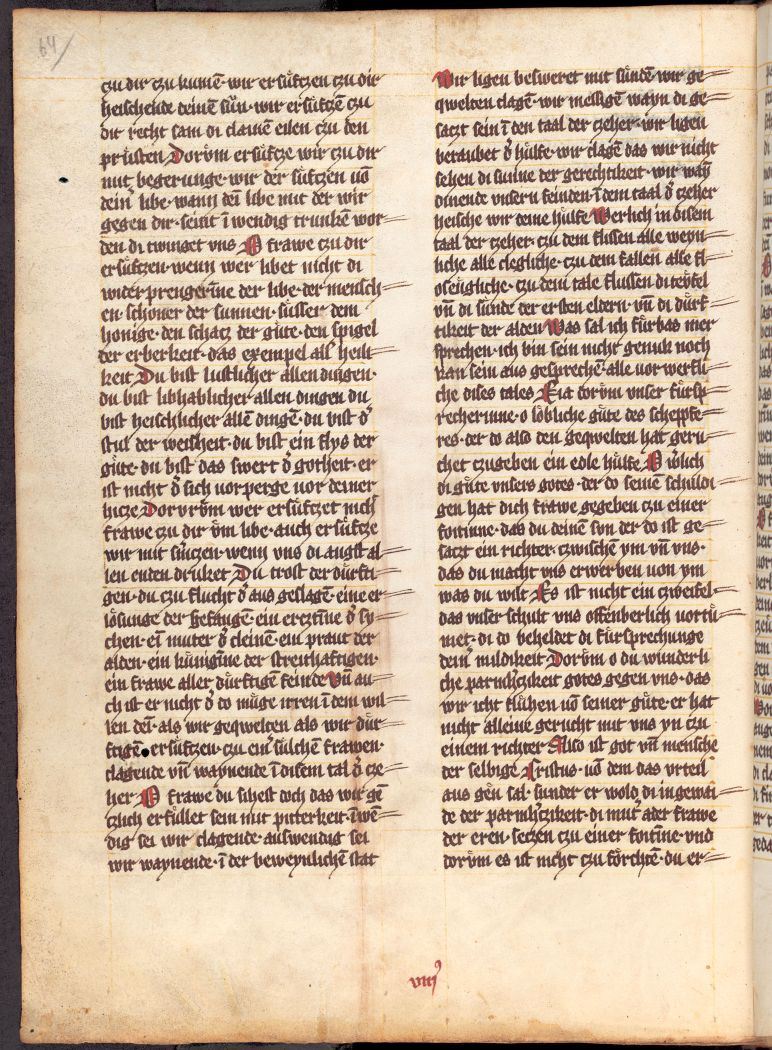 64/
czu dir czu kumē · wir ersuͤftzen czu dir
heischende deinē suͤn · wir ersuͤftzē czu
dir recht sam di clainē eilen czu den
pruͤsten Dorvͤm ersuͤftze wir czu dir
mit begerunge · wir der suͤftzen uō
dein' libe · wann deī libe mit der wir
gegen dir · seint ī wendig trunkē wor=
den di twinget vns O frawe czu dir
ersuͤftzen · wenn wer libet nicht di
wider prengerīne der libe · der mensch=
en · schoner der sunnen · suͤsser dem
honige · den schacz der guͤte · den spigel
der erberkeit · das exempel all' heili=
keit Du bist lustlicher allen dingen ·
du bist libhablicher allen dingen du
bist heischlicher allē dingē · du bist d'
stul der weisheit · du bist ein flys der
guͤte · du bist das swert d' gotheit · er
ist nicht d' sich uorperge uor deiner
hicze Dorvrvͤm wer ersuͤftzet nich'
frawe czu dir vͤm libe · auch ersuͤftze
wir mit smiczen · wenn vns di angst al=
len enden druket Du trost der duͤrfti=
gen · du czu flucht d' aus geslagē · eine er=
loͤsunge der gefangē · ein ercztīne d' sy=
chen · eī muter d' cleinē · ein praut der
alden · ein kuͤnigīne der streithaftigen ·
ein frawe aller duͤrftigē feinde Vn̄ au=
ch ist er nicht d' do muͤge irren ī dem wil=
len deī · als wir geqwelten als wir duͤr=
ftigē ersuͤftzen · czu ein' suͤlchen frawen ·
clagende vn̄ waynende ī disem tal d' cze=
her O frawe du sihest doch das wir gē=
czlich erfuͤllet sein mit pitterkeit · īwē=
dig sei wir clagende · auswendig sei
wir waynende · ī der beweynlichē stat
Wir ligen besweret mit suͤndē · wir ge=
qwelten clagē · wir messigē wayn di ge=
saczt sein ī den taal der czeher · wir ligen
beraubet d' huͤlfe · wir clagē das wir nicht
sehen di sunne der gerechtikeit · wir wayn̄
dinende unsern feinden · ī dem taal d' czeher
heische wir deine huͤlfe Werlich in disem
taal der czeher · czu dem flissen alle weyn=
liche alle clegliche · czu dem fallen alle fl=
oseugliche · czu dem tale flussen di teyfel
vn̄ di sunde der ersten eldern · vn̄ di duͤrf=
tikeit der alden Was sal ich fuͤrbas mer
sprechen · ich bin sein nicht genuk noch
kan sein aus gesprechē · alle uor werfli=
che dises tales Eia dorvͤm unser fuͤrsp=
recherinne · o loͤbliche guͤte des schepfe=
res · der do also den geqwelten hat geru=
chet czugeben ein edle huͤlfe O wͤlich
di guͤte unsers gotes · der do seinē schuldi=
gen hat dich frawe gegeben czu einer
foitinne · das du deinē son der do ist ge=
saczt ein richter · czwischē ym vn̄ vns ·
das du macht vns erwerben uon ym
was du wilt Es ist nicht ein czweifel ·
das unser schult vns offenberlich uortuͤ=
met · di do beheldet di fuͤrsprechunge
dein' mildikeit Dorvͤm o du wunderli=
che parmh'czikeit gotes gegen vns · das
wir icht fluͤhen uō seiner guͤte · er hat
nicht alleine gericht mit vns yn czu
einem richter Also ist got vn̄ mensche
der selbige Cristus · uō dem das urteil
aus gēn sal · sunder er wold di ingewai=
de der parmh'czikeit · di mut' ader frawe
der eren · seczen czu einer foitīne · vnd
dorvͤm es ist nicht czu foͤrchtē · du er=
viij